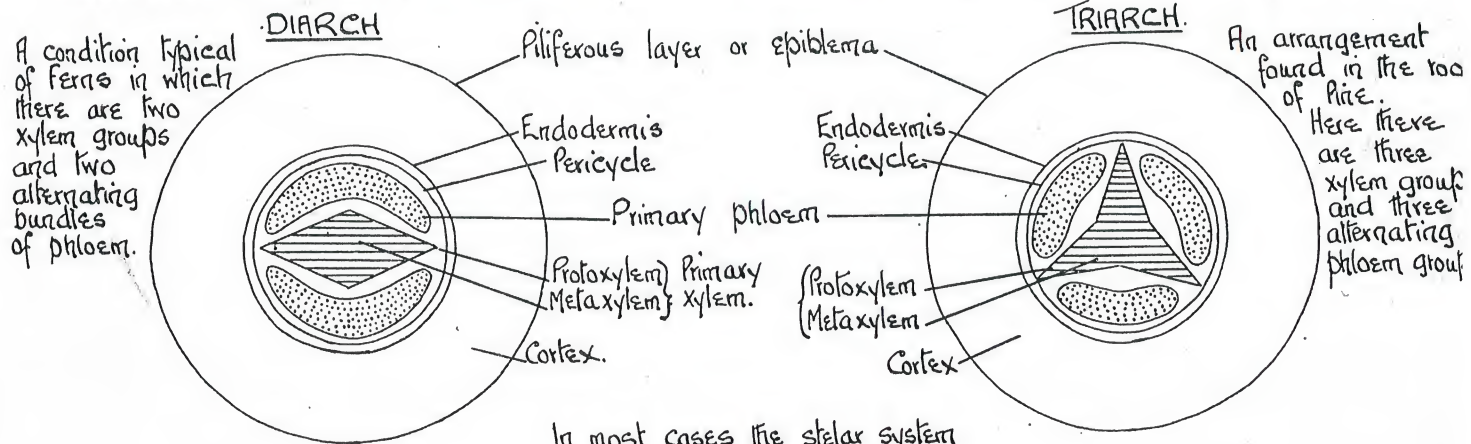 DIARCH
A condition typical
of Ferns in which
there are two
xylem groups
and two
alternating
bundles
of phloem.
Piliferous layer or epiblema
Endodermis
Pericycle
Primary phloem
Protoxylem } Primary
Metaxylem } xylem.
Cortex.
TRIARCH.
An arrangement
found in the roo
of Pine.
Here there
are three
xylem group
and three
alternating
phloem group
Endodermis
Pericycle
{ Protoxylem
( Metaxylem
Cortex
In most cases the stelar system